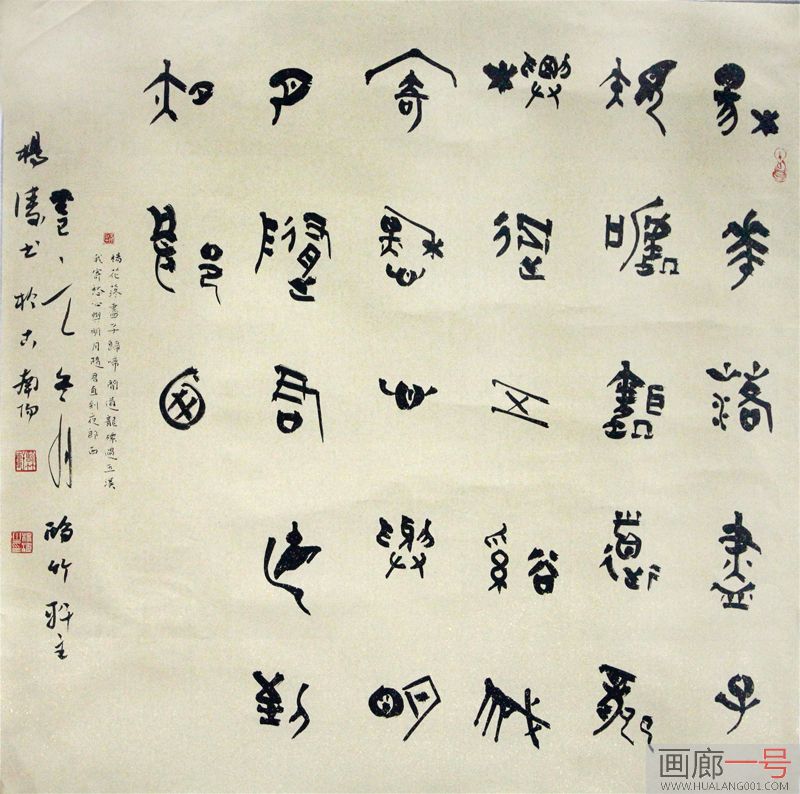 楊花落盡子
規啼聞道龍
標過五溪我
寄愁心與明
月隨君直到
夜郎西
楊花落盡子歸啼聞道龍標過五溪
我寄愁心與明月隨君直到夜郎西
冬月 竹軒主
楊濤書於古南陽
画廊一号
WWW.HUALANG001.COM